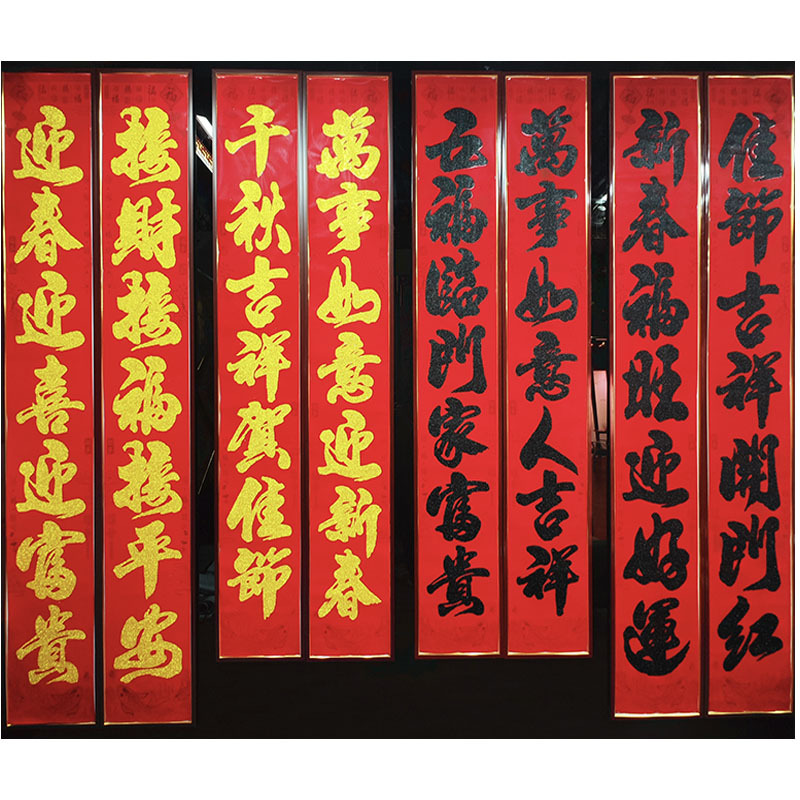 迎春迎喜迎富貴
接財接福接平安
千秋吉祥賀佳節
萬事如意迎新春
五福臨門家富貴
萬事如意人吉祥
新春福旺迎好運
佳節吉祥開門紅